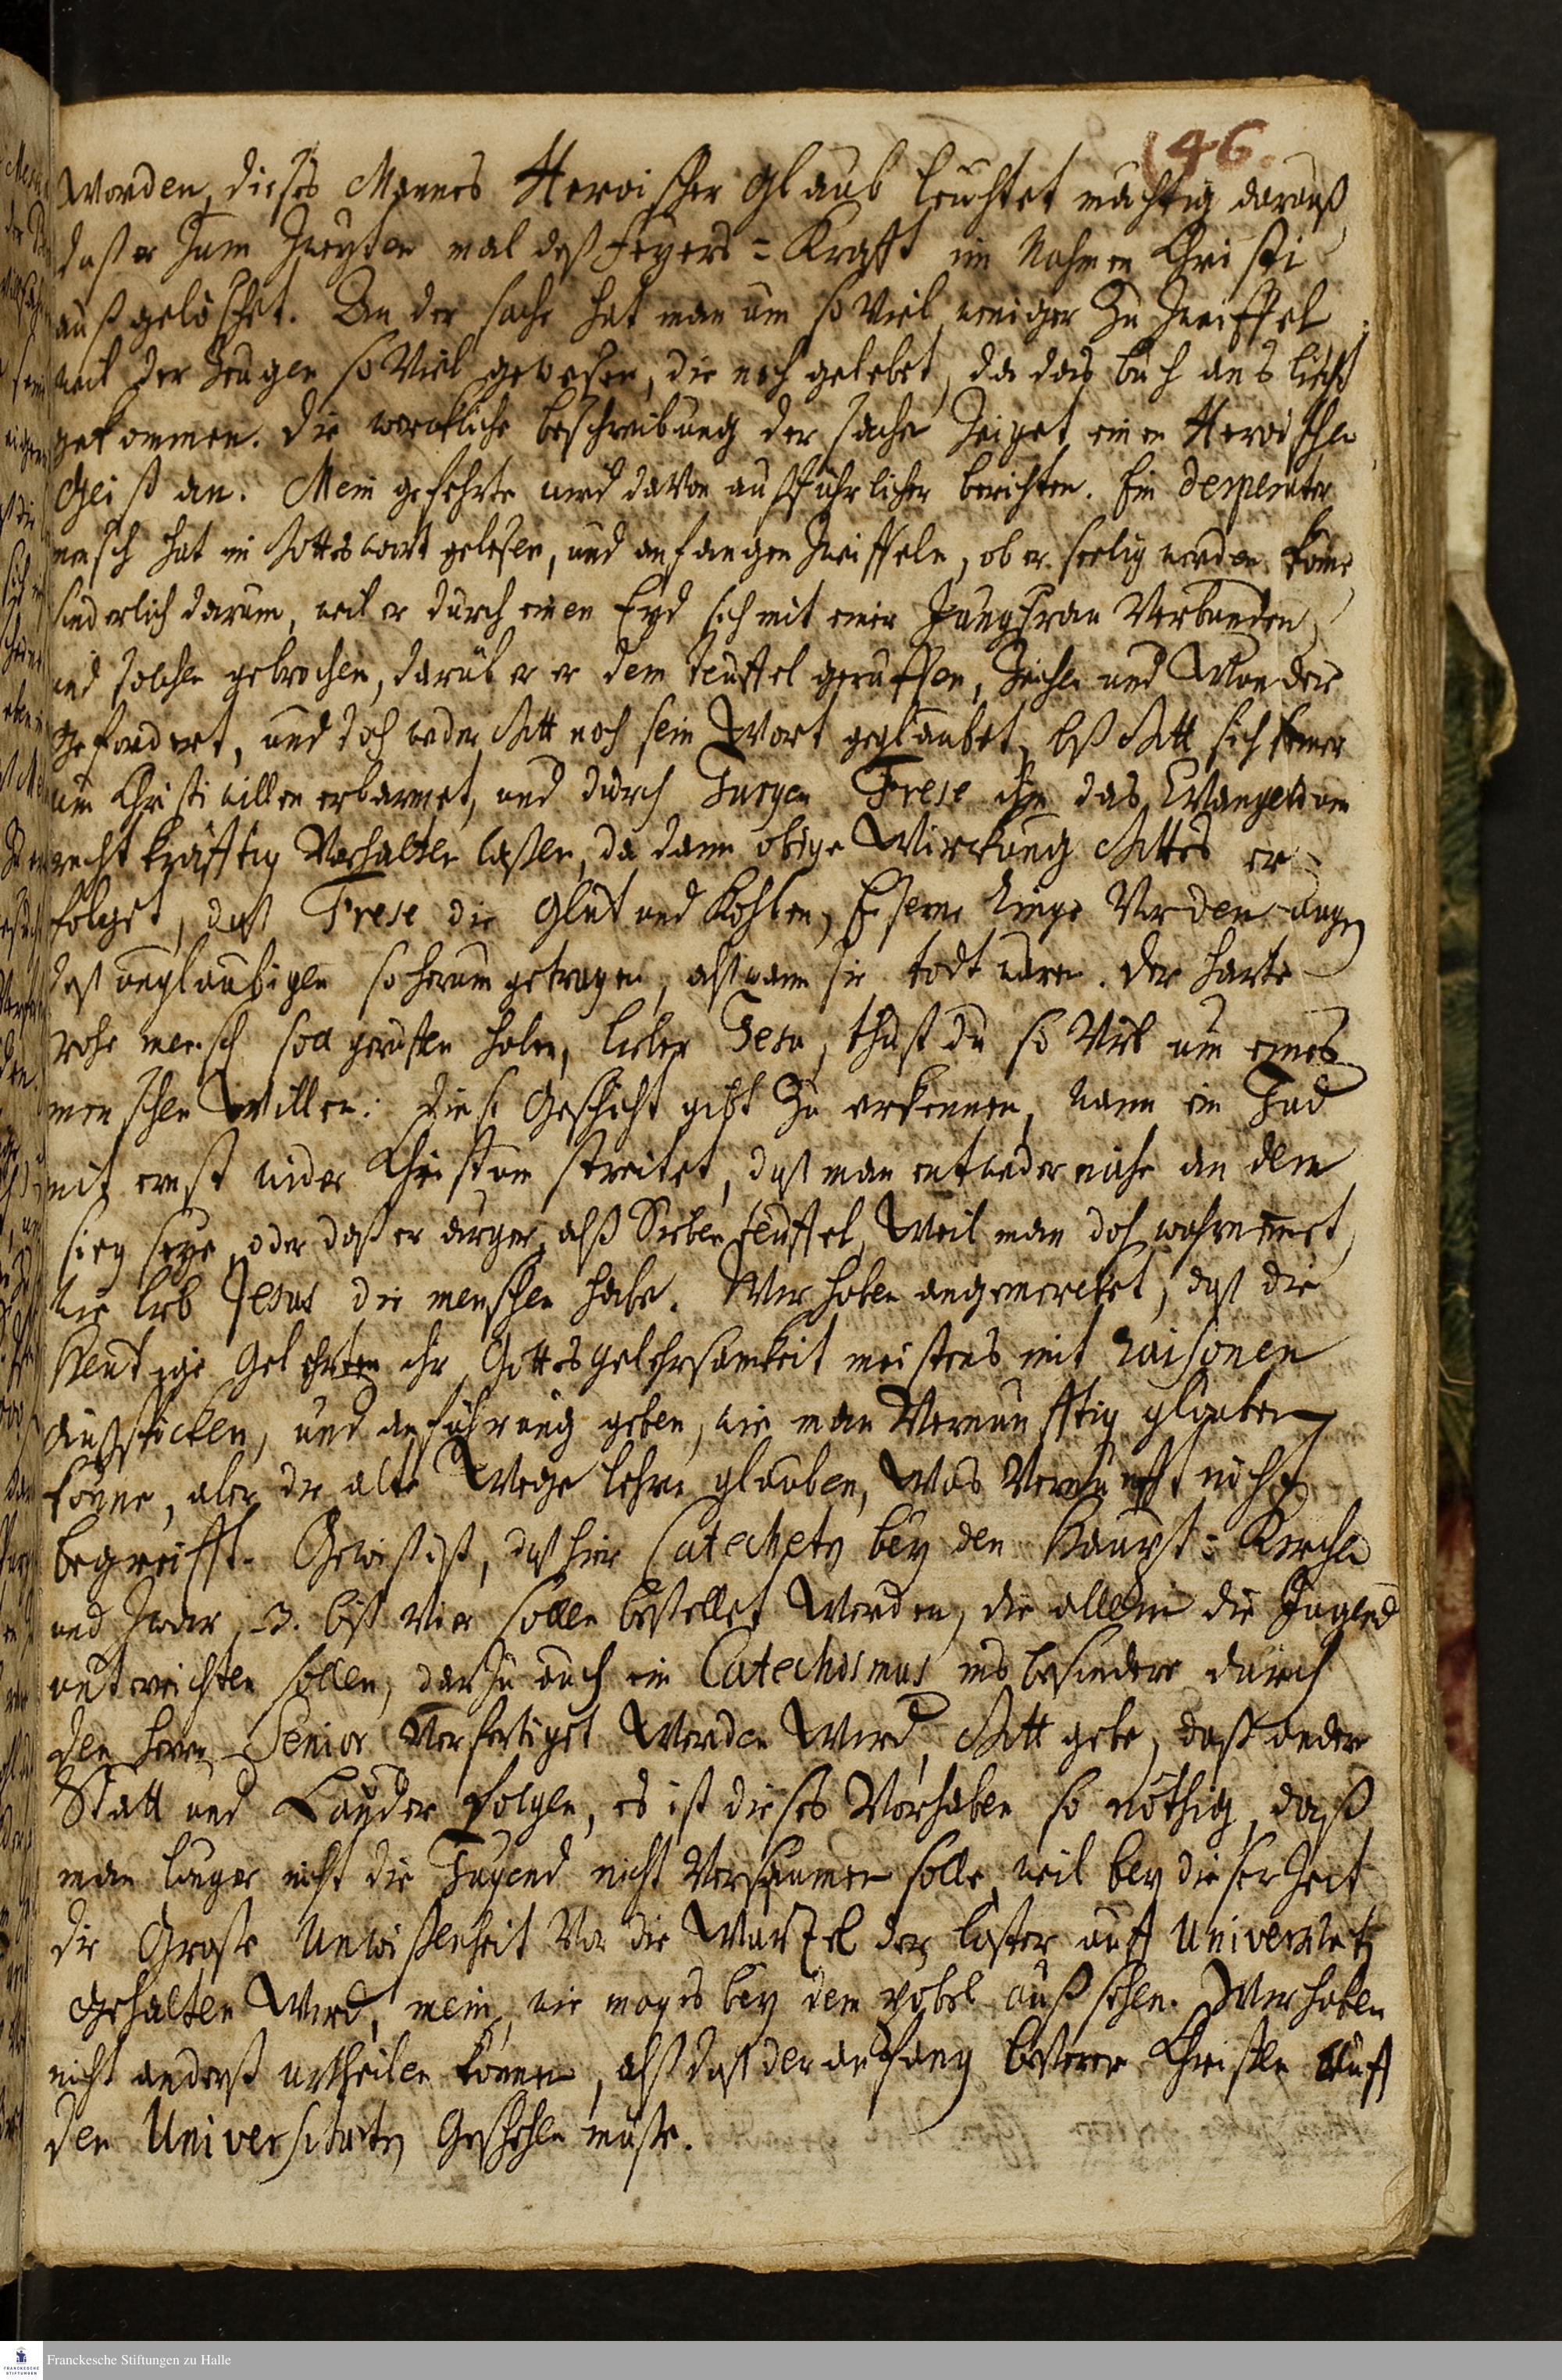 46.
worden, dieses Mannes Heroischer Glaub leuchtet mächtig darauß
daß er zum Zweyten mal deß feyers=Krafft im Nahmen Christi
außgelöschet. An der sache hat man um so viel weniger zu zweiffel
weil der Zeugen so viel gewesen, die noch gelebet, da das buch ans liecht
gekommen. Die werckliche beschreibung der sache zeiget einen Heroischen
Geist an. Mein gefehrte wird davon außführlicher berichten. Ein desperater
mensch hat in Gottes wort gelesen, und anfangen zweiffeln, ob er seelig werden könne
sonderlich darum, weil er durch einen Eyd sich mit einer Jungfrau verbunden
und solchen gebrochen, darüber er dem teuffel geruffen, Zeichen und Wunder
gefordert, und doch weder Gott noch sein Wort geglaubet, biß Gott sich seiner
um Christi willen erbarmet, und durch Jurgen Frese ihm das Evangelium
recht kräfftig vorhalten laßen, da dann obige Wirckung Gottes er=
folget, daß Frese die Glut und Kohlen, Eiserne Ringe vor den augen
deß unglaubigen so herum getragen, alß wann sie todt wären. Der harte
rohe mensch soll geruffen haben, lieber Jesu, thust du so viel um eines
menschen Willen. Diese Geschicht gibt zu erkennen, wann ein Jud
mit ernst wider Christum streitet, daß man entweder nahe an dem
sieg seye, oder daß er ärger, alß Sieben teuffel, Weil man doch wahrnimt
wie lieb Jesus die menschen habe. Wir haben angemercket, daß die
Heutige Gelehrten ihr Gottesgelehrsamkeit meistens mit raisonen
außspicken, und anführung geben, wie man Vernunfftig glauben
könne, aber die alte Wege lehren glauben, Was Vernunfft nicht
begreifft. Gewiß ist, daß hier Catecheten bey den Haupt=Kirchen
und zwar 3. biß vier sollen bestellet Werden, die allein die Jugend
unterrichten sollen, darzu auch ein Catechismus ins besondere durch
den herrn Senior Verfertiget Werden Wird, Gott gebe, daß andere
Statt und Länder folgen, es ist dieses Vorhaben so nöthig, daß
man länger nicht die Jugend nicht Versäumen solle, weil bey dieser Zeit
die Große Unwißenheit vor die Wurzel der laster auff Universitet
Gehalten Wird, mein, wie mag es bey dem pöbel auß sehen. Wir haben
nicht anderß urtheilen können, alß daß der anfang beßerer Christen auff
den Universitaeten Geschehen müste.
Franckesche Stiftungen zu Halle